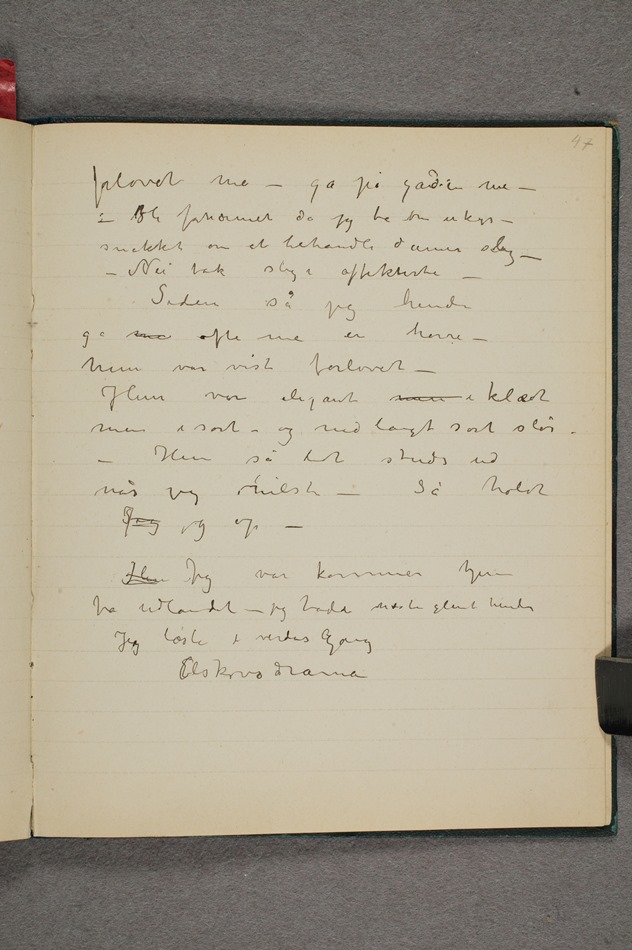 47
forlovet me – ga på gaden me –
– Ble fornærmet da jeg ba om et kys –
snakket om at behandle damer slig –
– Nei tak slige affekterte –
Siden så jeg hende
ga me ofte me en herre –
hun var vist forlovet –
Hun var elegant men i klædt
men i sort – og med langt sort slør.
– Hun så lit studs ud
når jeg hilste – Så holdt
Jeg jeg op –
Hun Jeg var kommen hjem
fra udlandet – jeg hadde næsten glemt hende
Jeg læste i verdens Gang
Elskovsdrama